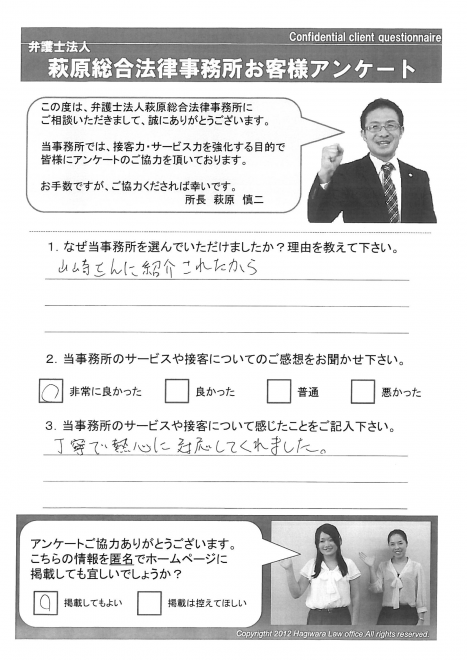 Confidential client questionnaire
弁護士法人
萩原総合法律事務所お客様アンケート
この度は、弁護士法人萩原総合法律事務所に
ご相談いただきまして、誠にありがとうございます。
当事務所では、接客力・サービス力を強化する目的で
皆様にアンケートのご協力を頂いております。
お手数ですが、ご協力くだされば幸いです。
所長 萩原 慎二
1. なぜ当事務所を選んでいただけましたか？理由を教えて下さい。
山崎さんに紹介されたから
2. 当事務所のサービスや接客についてのご感想をお聞かせ下さい。
非常に良かった 良かった 普通 悪かった
3. 当事務所のサービスや接客について感じたことをご記入下さい。
丁寧で熱心に対応してくれました。
アンケートご協力ありがとうございます。
こちらの情報を匿名でホームページに
掲載しても宜しいでしょうか？
掲載してもよい 掲載は控えてほしい
Copyright 2012 Hagiwara Law office All rights reserved.